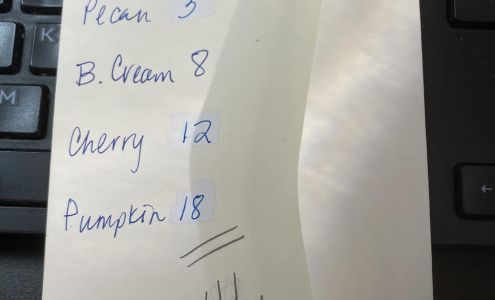 Pecan
B. Cream 8
Cherry 12
Pumpkin 18
K
M